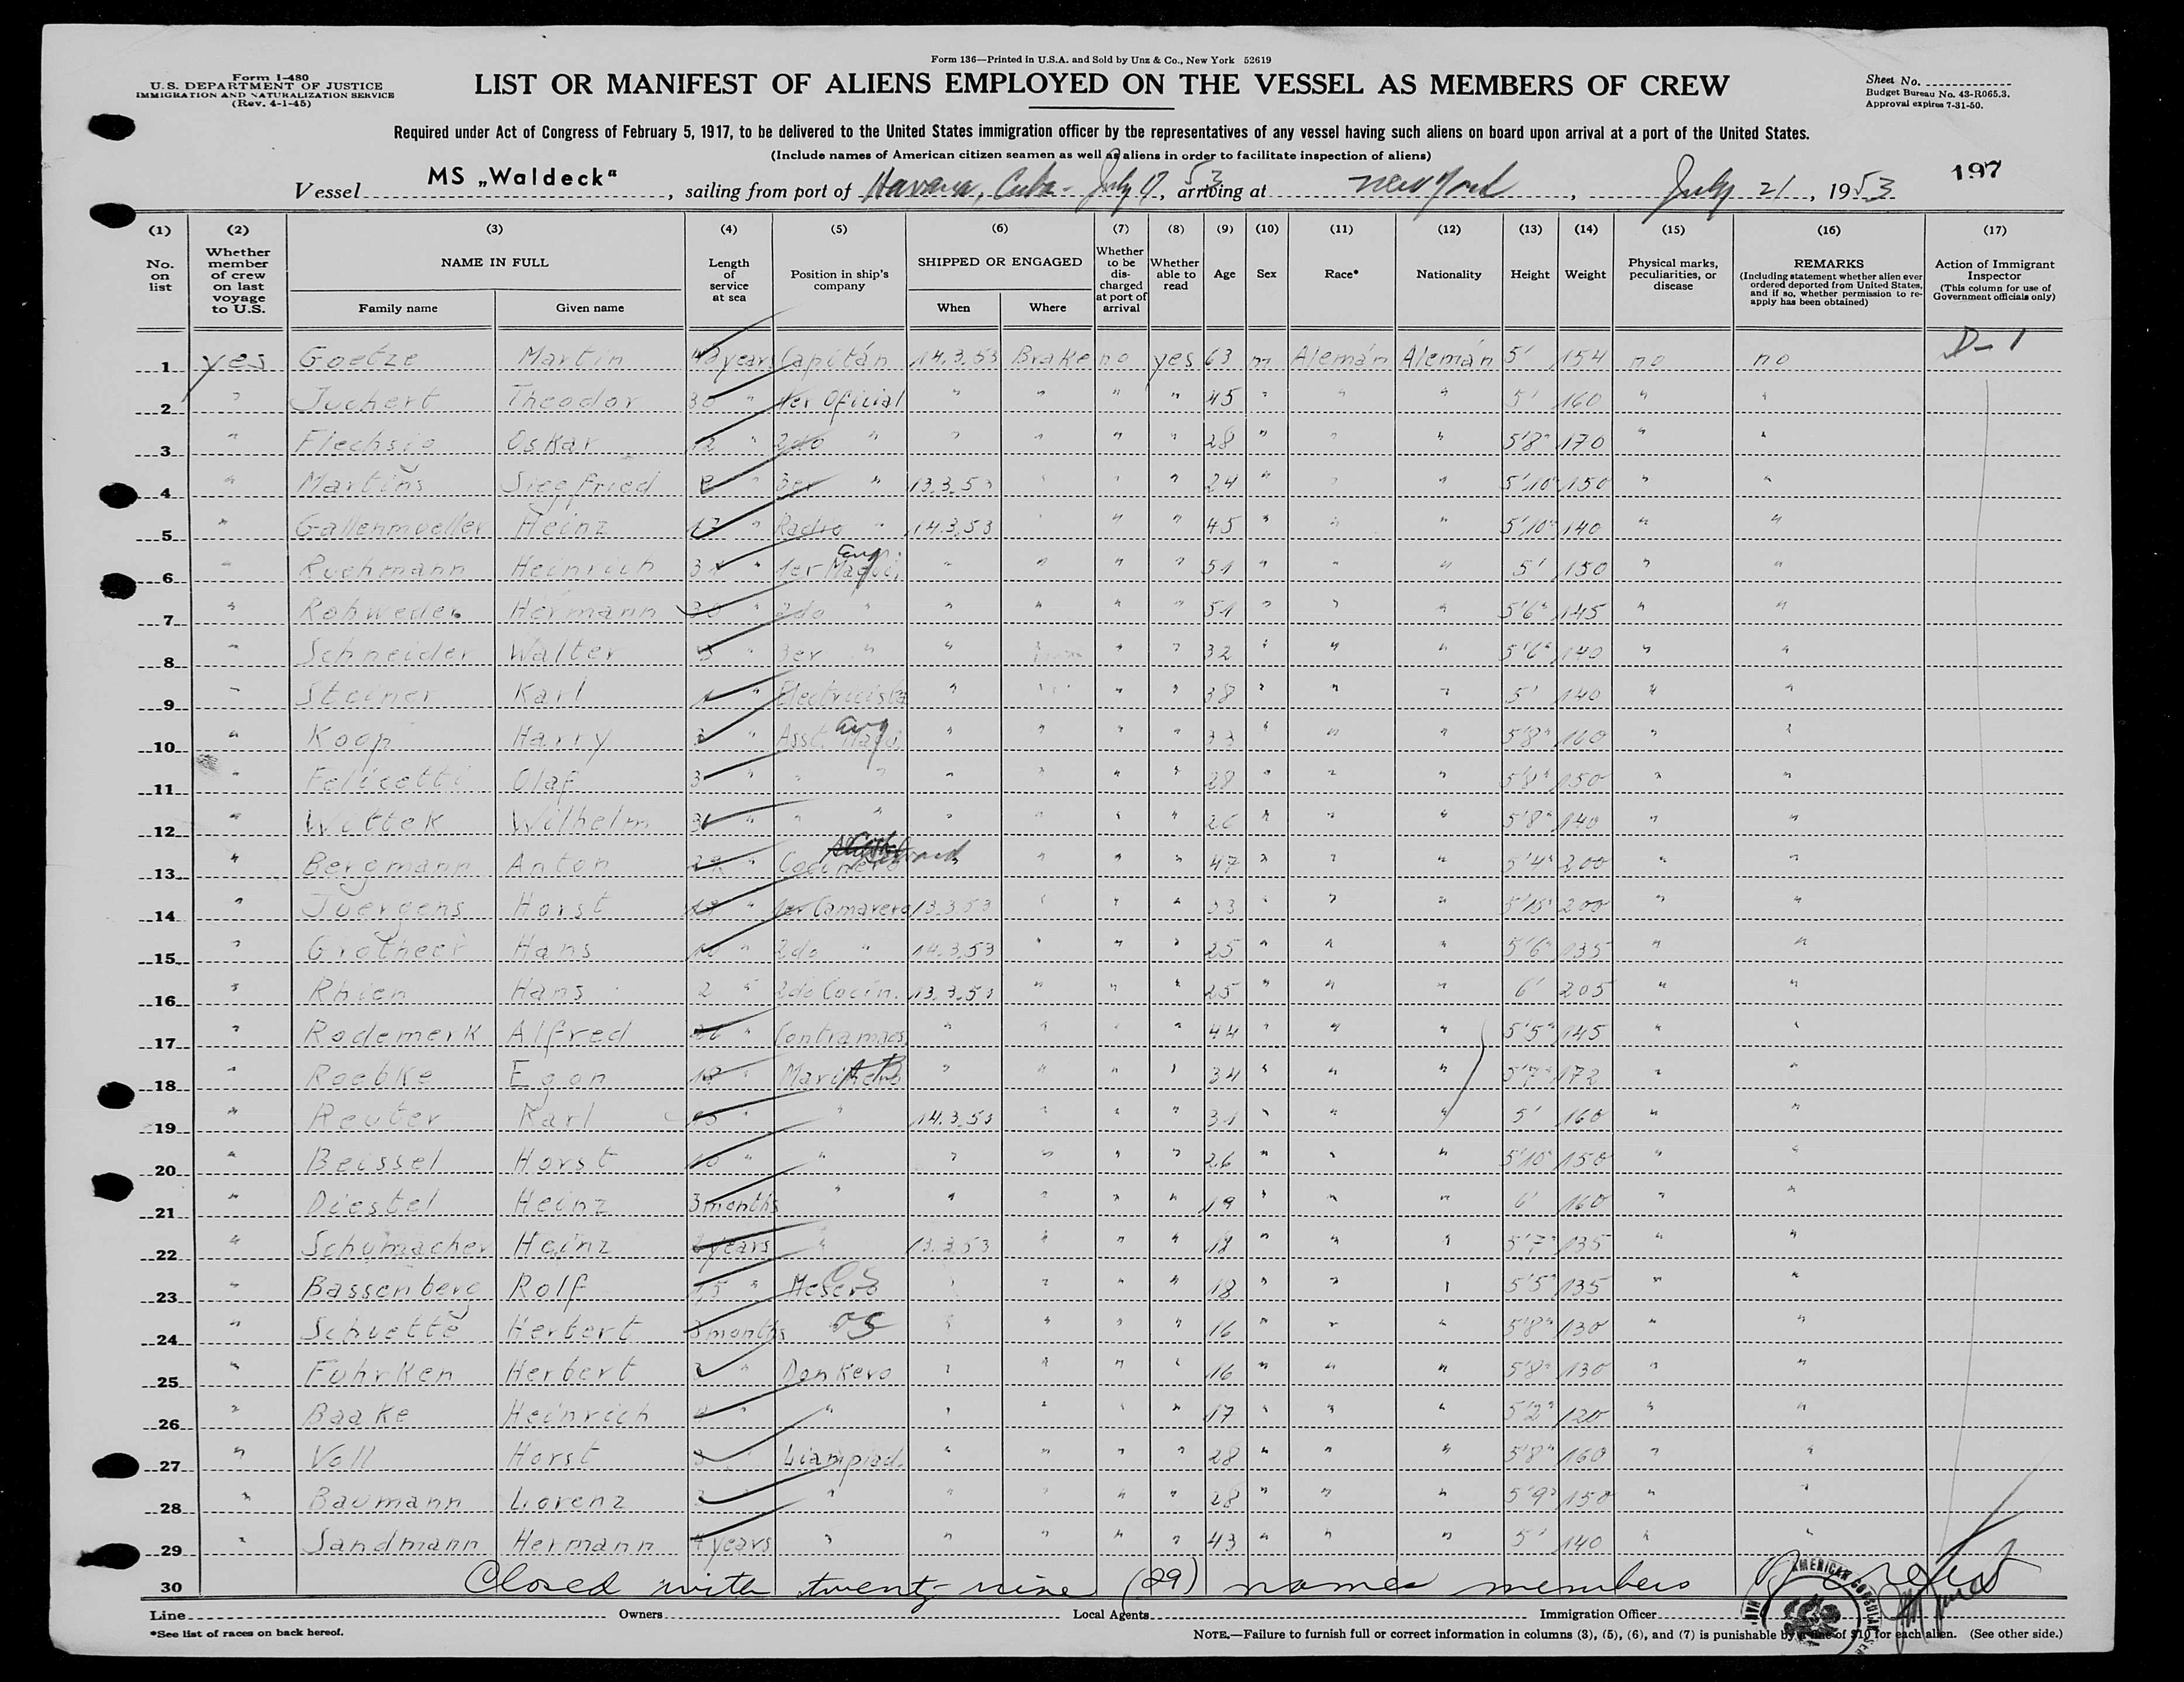 Form 136—Printed in U.S.A. and Sold by Unz & Co., New York 52619
Form I-480
U.S. DEPARTMENT OF JUSTICE
IMMIGRATION AND NATURALIZATION SERVICE
(Rev. 4-1-45)
LIST OR MANIFEST OF ALIENS EMPLOYED ON THE VESSEL AS MEMBERS OF CREW
Sheet No.
Budget Bureau No. 43-R065.3.
Approval expires 7-31-50.
Required under Act of Congress of February 5, 1917, to be delivered to the United States immigration officer by the representatives of any vessel having such aliens on board upon arrival at a port of the United States.
(Include names of American citizen seamen as well as aliens in order to facilitate inspection of aliens)
197
Vessel MS „Waldeck“, sailing from port of Havana, Cuba - July 17, 53 arriving at New York, July 21, 1953
(1) No. on list (2) Whether member of crew on last voyage to U.S. (3) NAME IN FULL Family name Given name (4) Length of service at sea (5) Position in ship's company (6) SHIPPED OR ENGAGED When Where (7) Whether to be discharged at port of arrival (8) Whether able to read (9) Age (10) Sex (11) Race* (12) Nationality (13) Height (14) Weight (15) Physical marks, peculiarities, or disease (16) REMARKS (Including statement whether alien ever ordered deported from United States, and if so, whether permission to re-apply has been obtained) (17) Action of Immigrant Inspector (This column for use of Government officials only)
1 yes Goetze Martin years Capitán 14.3.53 Brake no yes 63 m Alemán Alemán 5' 154 no no D-1
2 " Juchert Theodor 30 " 1er Oficial " " " " 45 " " " 5' 160 " "
3 " Flechsig Oskar 12 " 2do " " " " " 28 " " " 5'8" 170 " "
4 " Martins Siegfried " 3er " 13.3.53 " " " 24 " " " 5'10" 150 " "
5 " Gallenmueller Heinz 17 " Radio " 14.3.53 " " " 45 " " " 5'10" 140 " "
6 " Ruehmann Heinrich " 1er Maqui. Eng. " " " " 51 " " " 5' 150 " "
7 " Rohweder Hermann 30 " 2do " " " " " 51 " " " 5'6" 145 " "
8 " Schneider Walter " 3er " " " " 32 " " " 5'6" 140 " "
9 " Steiner Karl " Electricista " " " " 38 " " " 5' 140 " "
10 " Koop Harry " Asst. Maqui. Eng " " " " 33 " " " 5'8" " "
11 " Felicetti Olaf 3 " " " " " " " 28 " " " 5'8" 150 " "
12 " Wittek Wilhelm " " " " " " " 26 " " " 5'8" 140 " "
13 " Bergmann Anton " Cocinero " " " 47 " " " 5'4" 200 " "
14 " Juergens Horst " 1er Camarero 13.3.53 " " " 33 " " " 200 " "
15 " Grotheer Hans " 2do " 14.3.53 " " " 25 " " " 5'6" 135 " "
16 " Rhien Hans 2 " 2do Cocin. 13.3.53 " " " 25 " " " 6' 205 " "
17 " Rodemerk Alfred 26 " Contramaes. " " " " 44 " " " 5'5" 145 " "
18 " Roebke Egon 18 " " " " " 34 " " " 5'7" 172 " "
19 " Reuter Karl 15 " " 14.3.53 " " " 31 " " " 5' 160 " "
20 " Beissel Horst 10 " " " " " " 26 " " " 5'10" 150 " "
21 " Diestel Heinz 3 months " " " " " 19 " " " 6' 160 " "
22 " Schumacher Heinz years " 13.3.53 " " " 18 " " " 5'7" 135 " "
23 " Bassenberg Rolf " Mesero OS " " " " 18 " " " 5'5" 135 " "
24 " Schuette Herbert 3 months OS " " " " 16 " " " 5'8" 130 " "
25 " Fuhrken Herbert 3 " Donkero " " " " 16 " " " 5'8" 130 " "
26 " Baake Heinrich " " " " " " 17 " " " 5'2" 120 " "
27 " Voll Horst 3 " Liampiad. " " " " 28 " " " 5'8" 160 " "
28 " Baumann Lorenz 3 " " " " " " 28 " " " 5'9" 150 " "
29 " Sandmann Hermann 4 years " " " " " 43 " " " 5' 140 " "
30 Closed with twenty-nine (29) names members
Line Owners Local Agents Immigration Officer
AMERICAN CONSULAR
*See list of races on back hereof.
NOTE.—Failure to furnish full or correct information in columns (3), (5), (6), and (7) is punishable by a fine of $10 for each alien. (See other side.)